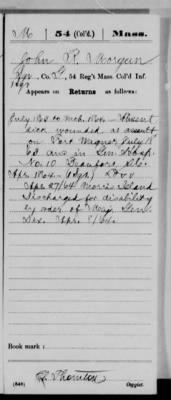 M 54 (Col'd.) Mass.
John R. Morgan
Co. G, 54 Reg't Mass. Col'd Inf.
Appears on Returns as follows:
July 1863 to Mch. 1864 Absent
sick wounded at assault
on Fort Wagner July 18
63 and in Gen Hosp.
No. 10 Beaufort
Apr. 1864
Apr 27/64 Morris Island
Discharged for disability
by order of Maj. Genl.
Apr. 8/64.
Book mark:
Thornton
(546) Copyist.